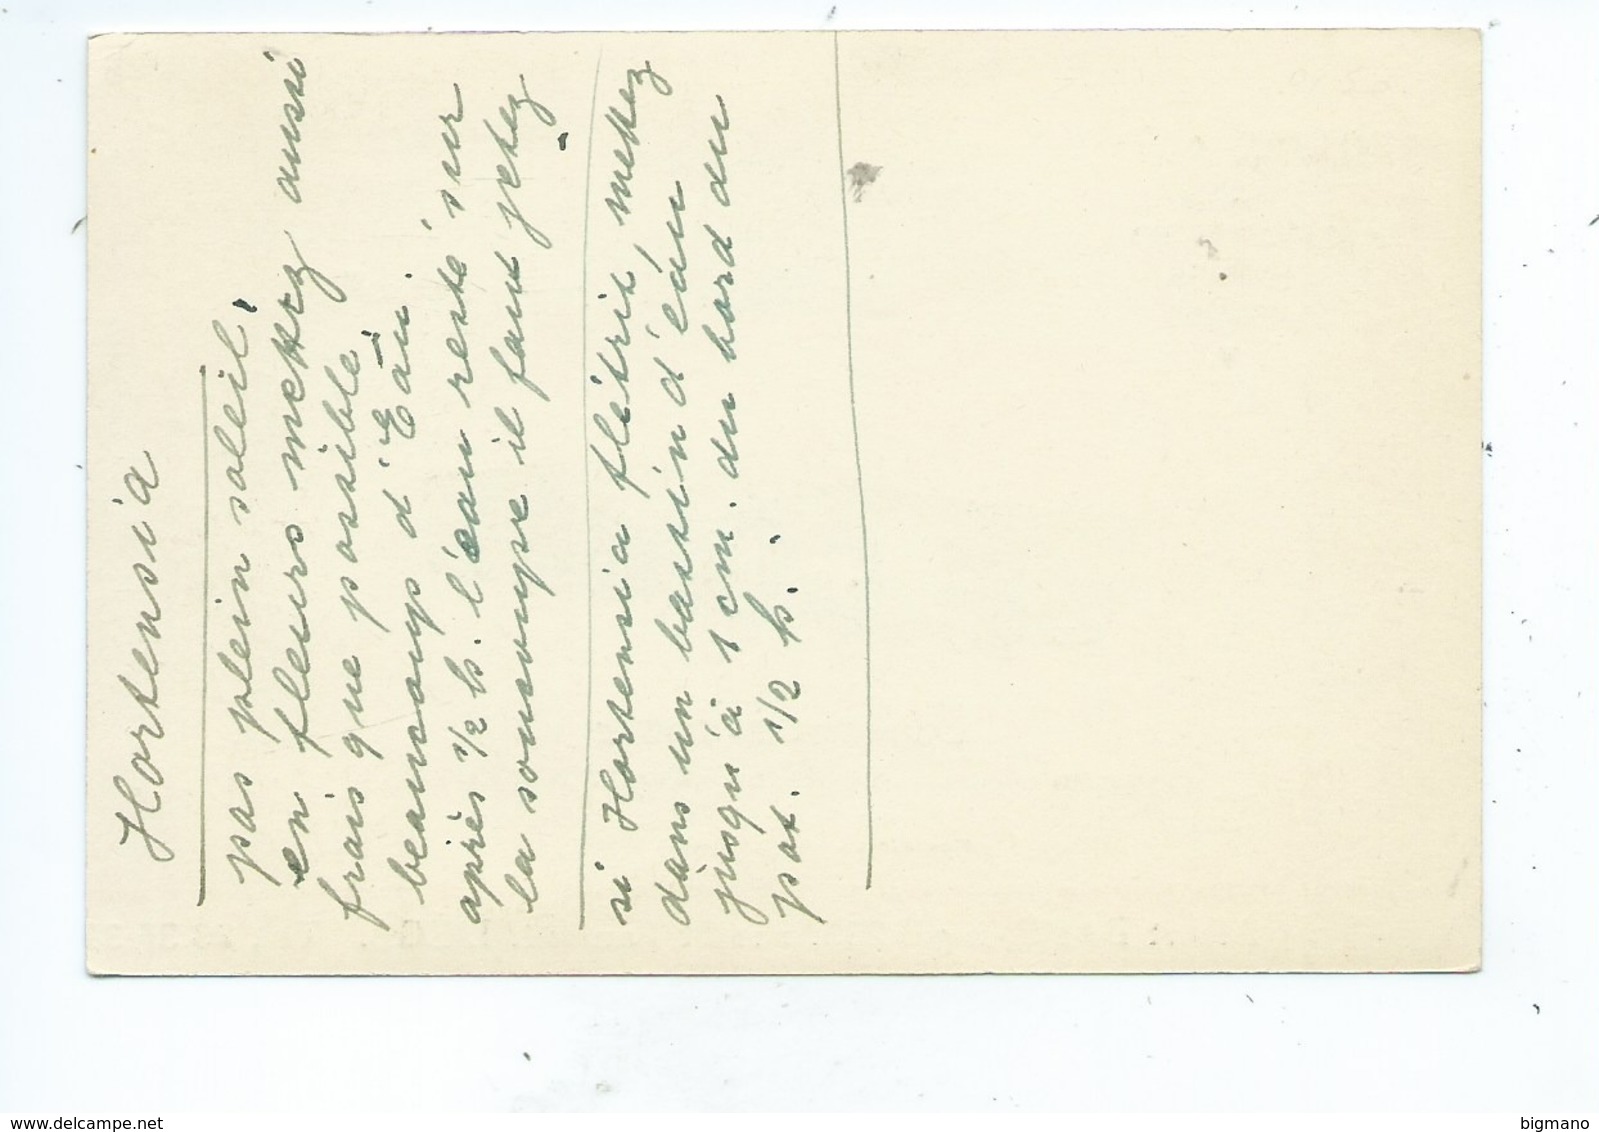 Hortensia
pas plein soleil.
en fleurs mettez aussi
frais que posible.
beaucoup d'Eau.
après 1/2 h. l'eau reste sur
la sousoupe il faut jetez.
si Hortensia flétrit, mettez
dans un bassin d'eau
jusqu'à 1 cm. du bord du
pot. 1/2 h.
www.delcampe.net
bigmano